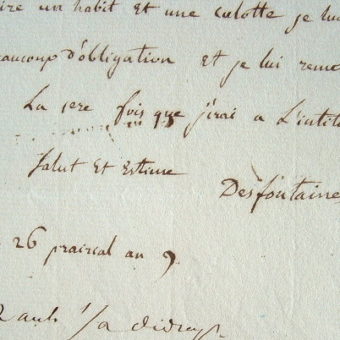 ire un habit et une culotte je lui
eaucoup d'obligation et je lui reme
La 1ere fois que j'irai a L'intit
Salut et Estime
Desfontaine
26 prairial an 9.